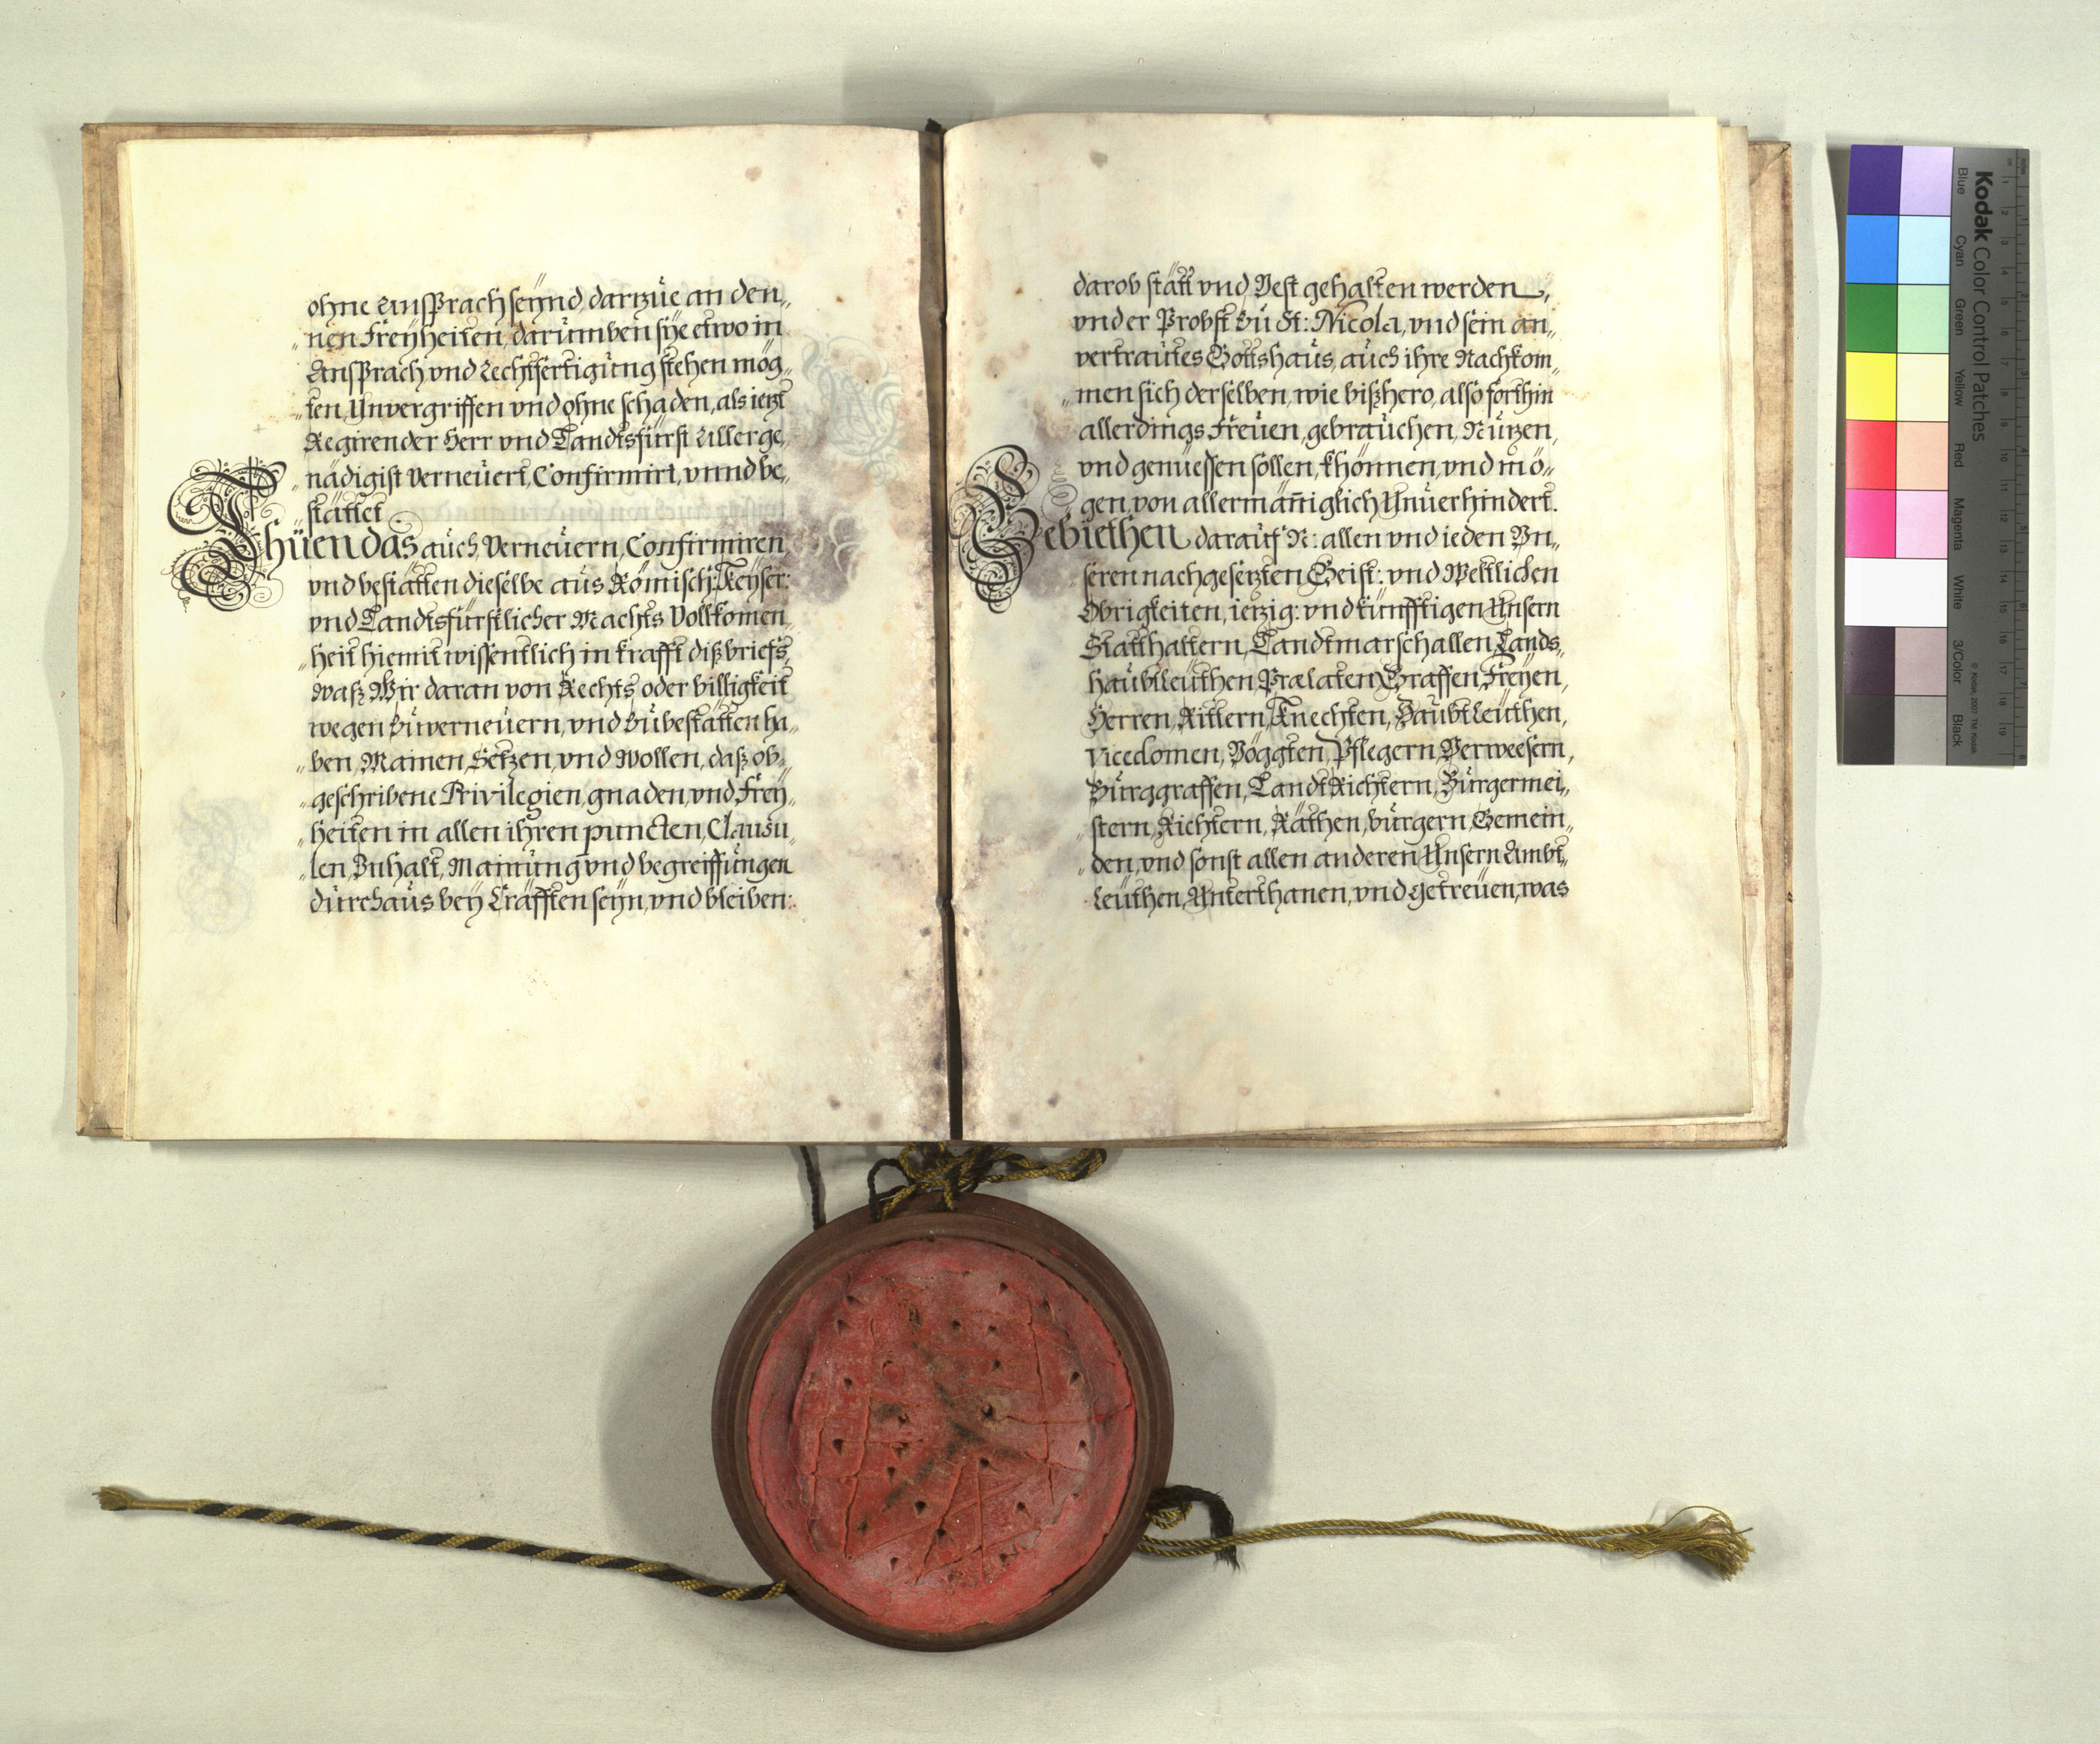 ohne Ansprach seynd, darzue an den„
„nen Freyheiten, darumben sye etwo in
Ansprach vnd Rechtfertigung stehen mög„
„ten, Vnvergriffen vnd ohne schaden, als iezt
Regirender Herr vnd Landtsfürst Allerge„
„nädigist Verneüert, Confirmirt, vnnd be„
stättet.
Thüen das auch, Verneüern, Confirmiren,
vnd bestätten dieselbe aus Römisch: Keyser:
vnd Landtsfürstlicher Machts Vollkomen„
„heit hiemit wissentlich in krafft diß briefs,
waß Wir daran von Rechts oder billigkeit
wegen zuverneüern, vnd zubestätten ha„
„ben, Mainen, Setzen, vnd Wollen, daß ob„
„geschribene Privilegien, gnaden, vnd Frey„
„heiten in allen ihren puncten, Clausu„
„len, Inhalt, Mainung vnd begreiffungen
durchaus bey Cräfften seyn, vnd bleiben:
darob stätt vnd Vest gehalten werden,
vnd er Probst zu St: Nicola, vnd sein an„
vertrautes Gottshaus, auch ihre Nachkom„
„men sich derselben, wie bißhero, also forthin
allerdings Freüen, gebrauchen, Nuzen,
vnd genüessen sollen, khönnen, vnd mö„
„gen, von allermäniglich Vnuerhindert.
Gebiethen darauf N: allen vnd ieden Vn„
„seren nachgesezten Geist: vnd Weltlichen
Obrigkeiten, iezig: vnd künfftigen Vnsern
Statthaltern, Landtmarschallen, Lands„
haubtleüthen, Prælaten, Graffen, Freyen,
Herren, Rittern, Knechten, Haubtleüthen,
Vicedomen, Vöggten, Pflegern, Verweesern,
Burggraffen, LandtRichtern, Burgermei„
„stern, Richtern, Räthen, burgern, Gemein„
„den, vnd sonst allen anderen Vnsern Ambt„
„leüthen, Vnterthanen, vnd getreüen, was
Kodak Color Control Patches
Blue Cyan Green Yellow Red Magenta White 3/Color Black
© Kodak, 2007 TM: Kodak